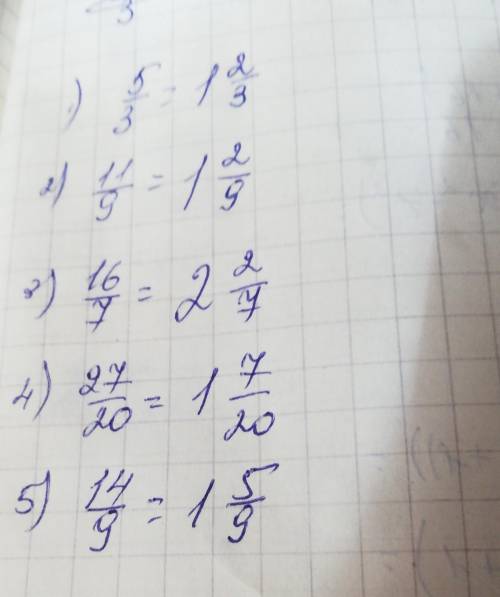 3
1) 5/3 = 1 2/3
2) 11/9 = 1 2/9
3) 16/7 = 2 2/7
4) 27/20 = 1 7/20
5) 14/9 = 1 5/9